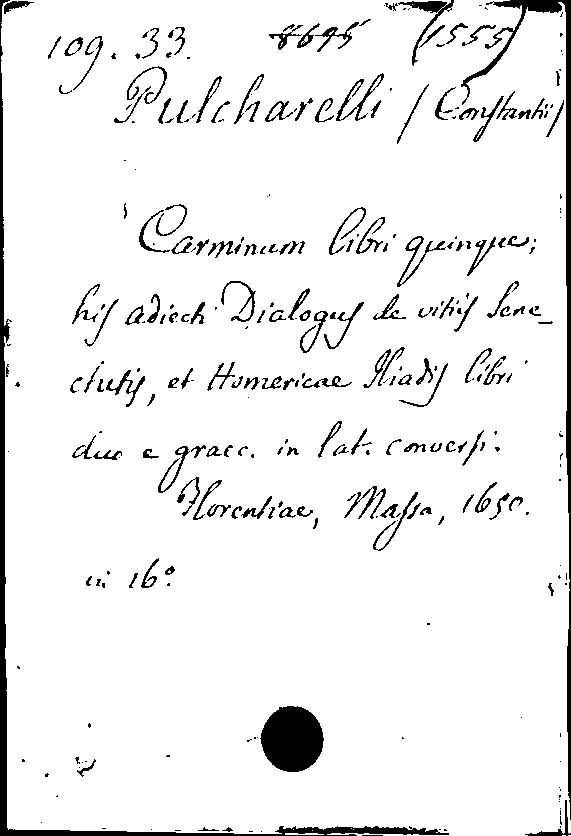 109. 33. 8645 (1555)
Pulcharelli / Constantii /
Carminum libri quinque;
his adiecti Dialogus de vitiis Sene-
ctutis, et Homericae Iliadis libri
duo e graec. in lat. conversi.
Florentiae, Massa, 1650.
in 16°.